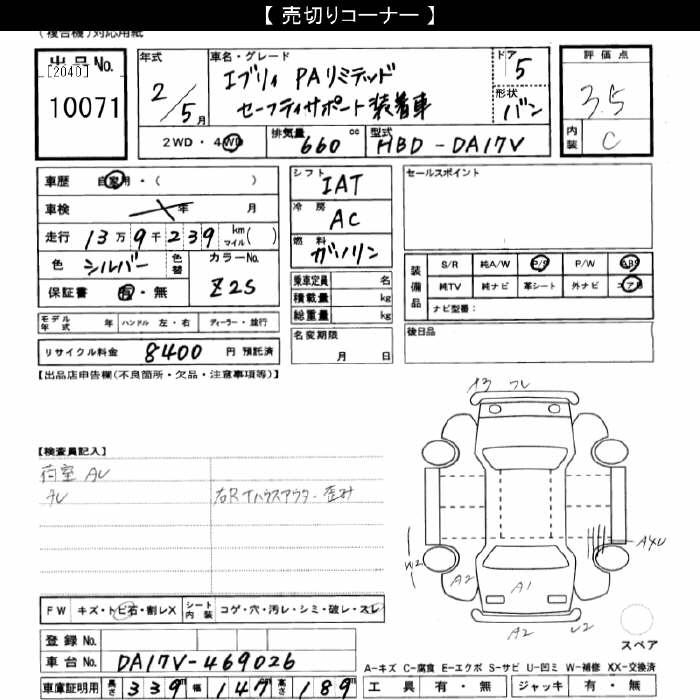 【 売切りコーナー 】
(複合機)対応用紙
出品No.
[2040]
10071
年式
2/5月
車名・グレード
エブリィ PAリミテッド
セーフティサポート装着車
ドア
5
形状
バン
評価点
3.5
内装
C
2WD・4WD
排気量 660 cc
型式 HBD-DA17V
車歴 自家用・( )
車検 年 月
走行 13万9千239 km マイル( )
色 シルバー 色替
カラーNo. Z2S
保証書 有・無
シフト IAT
冷房 AC
燃料 ガソリン
乗車定員 名
積載量 kg
総重量 kg
セールスポイント
装備品
S/R 純A/W P/S P/W ABS
純TV 純ナビ 革シート 外ナビ エアB
ナビ型番:
モデル年式 年 ハンドル 左・右 ディーラー・並行
リサイクル料金 8400 円 預託済
名変期限 月 日
後日品
【出品店申告欄(不良箇所・欠品・注意事項等)】
【検査員記入】
荷室 AU
右Rインハウスアウター 歪み
A3
W2
A2
A1
A2
U2
スペア
FW キズ・トビ石・割レX シート内装 コゲ・穴・汚レ・シミ・破レ・スレ
登録No.
車台No. DA17V-469026
車庫証明用 長さ 339 幅 147 高さ 189
A-キズ C-腐食 E-エクボ S-サビ U-凹ミ W-補修 XX-交換済
工具 有・無 ジャッキ 有・無